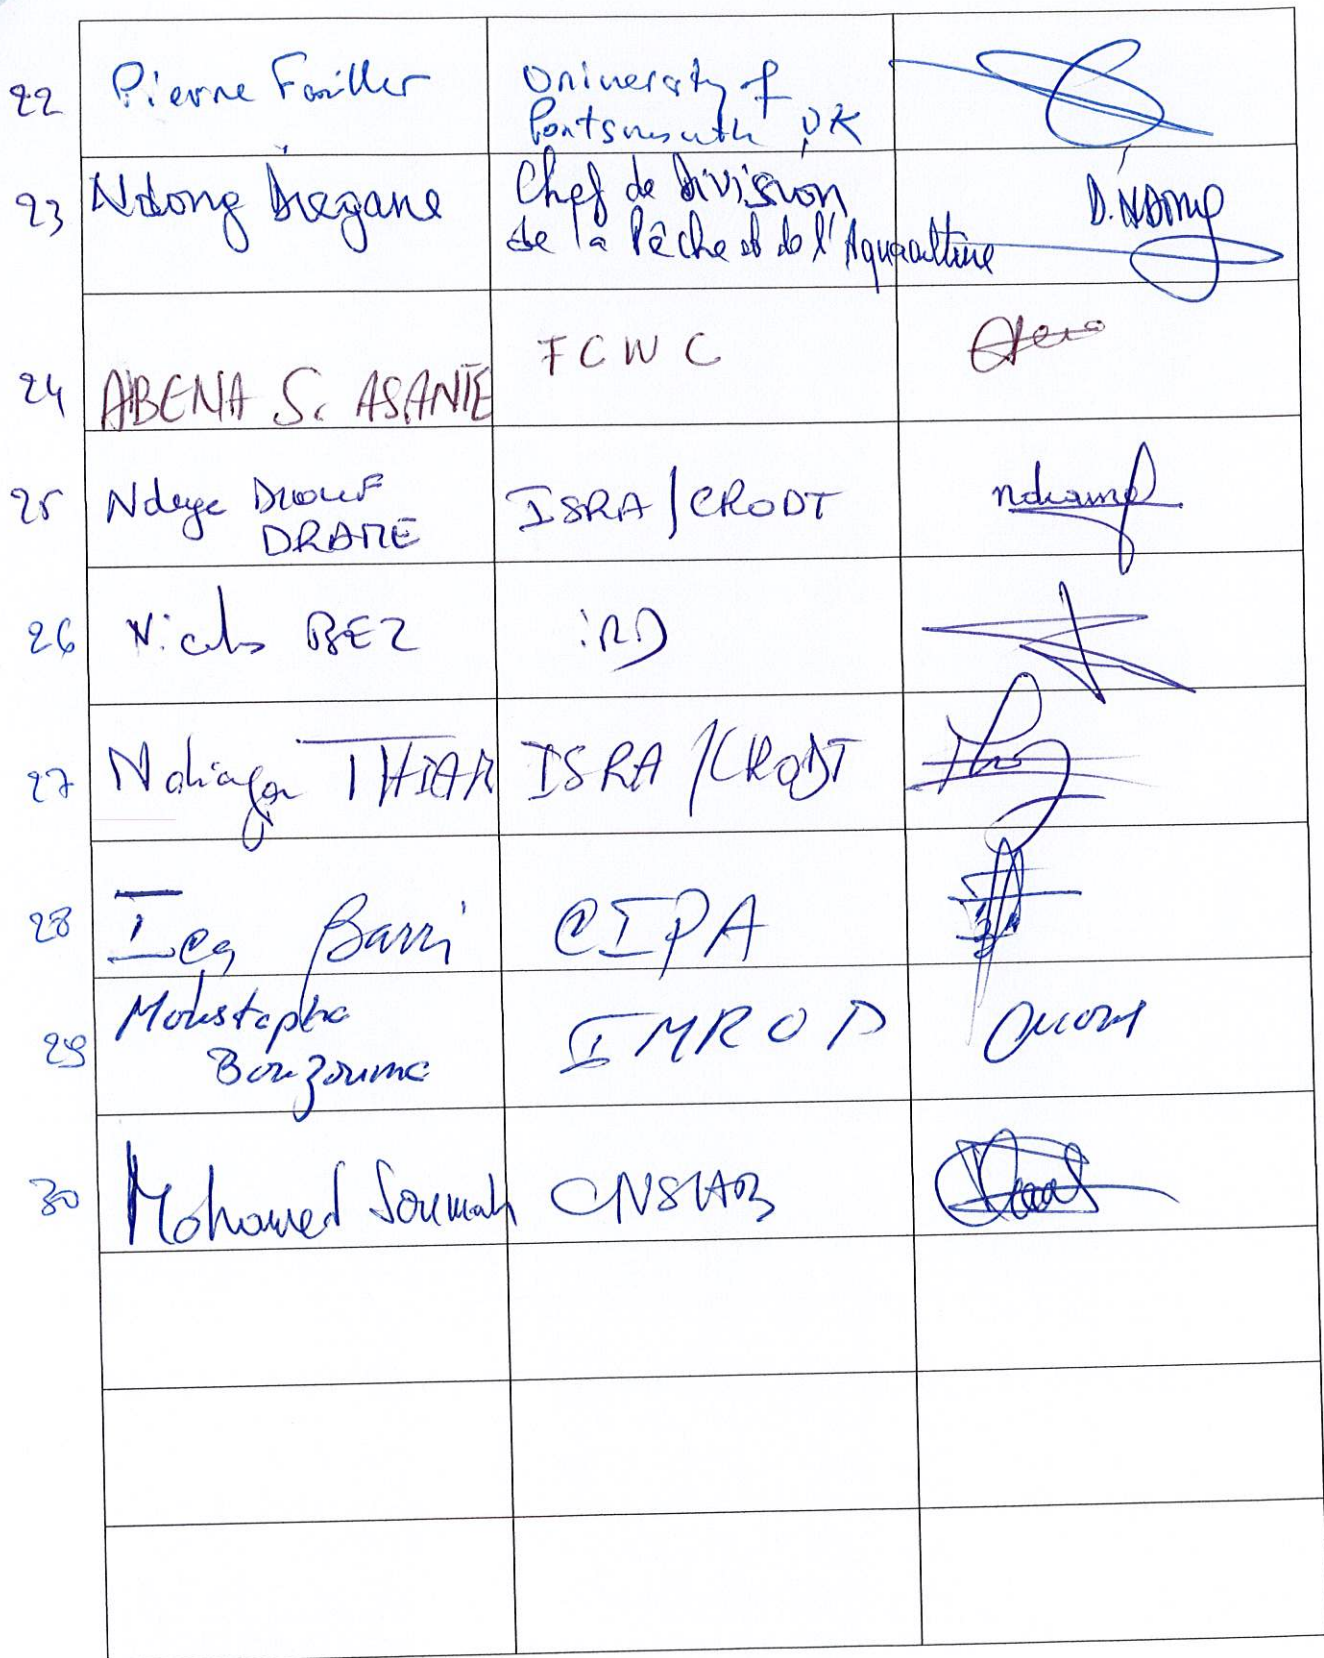 22 Pierre Failler University of
Portsmouth UK
23 Ndong Diegane Chef de Division D. NDong
de la Pêche et de l'Aquaculture
24 ABENA S. ASANTE FCWC
25 Ndeye Diouf ISRA/CRODT
DRAME
26 Nicolas BEZ iRD
27 Ndiaga THIAM ISRA/CRODT
28 Barri CIPA
29 Moustapha IMROP
Bouzouma
30 Mohamed Soumah